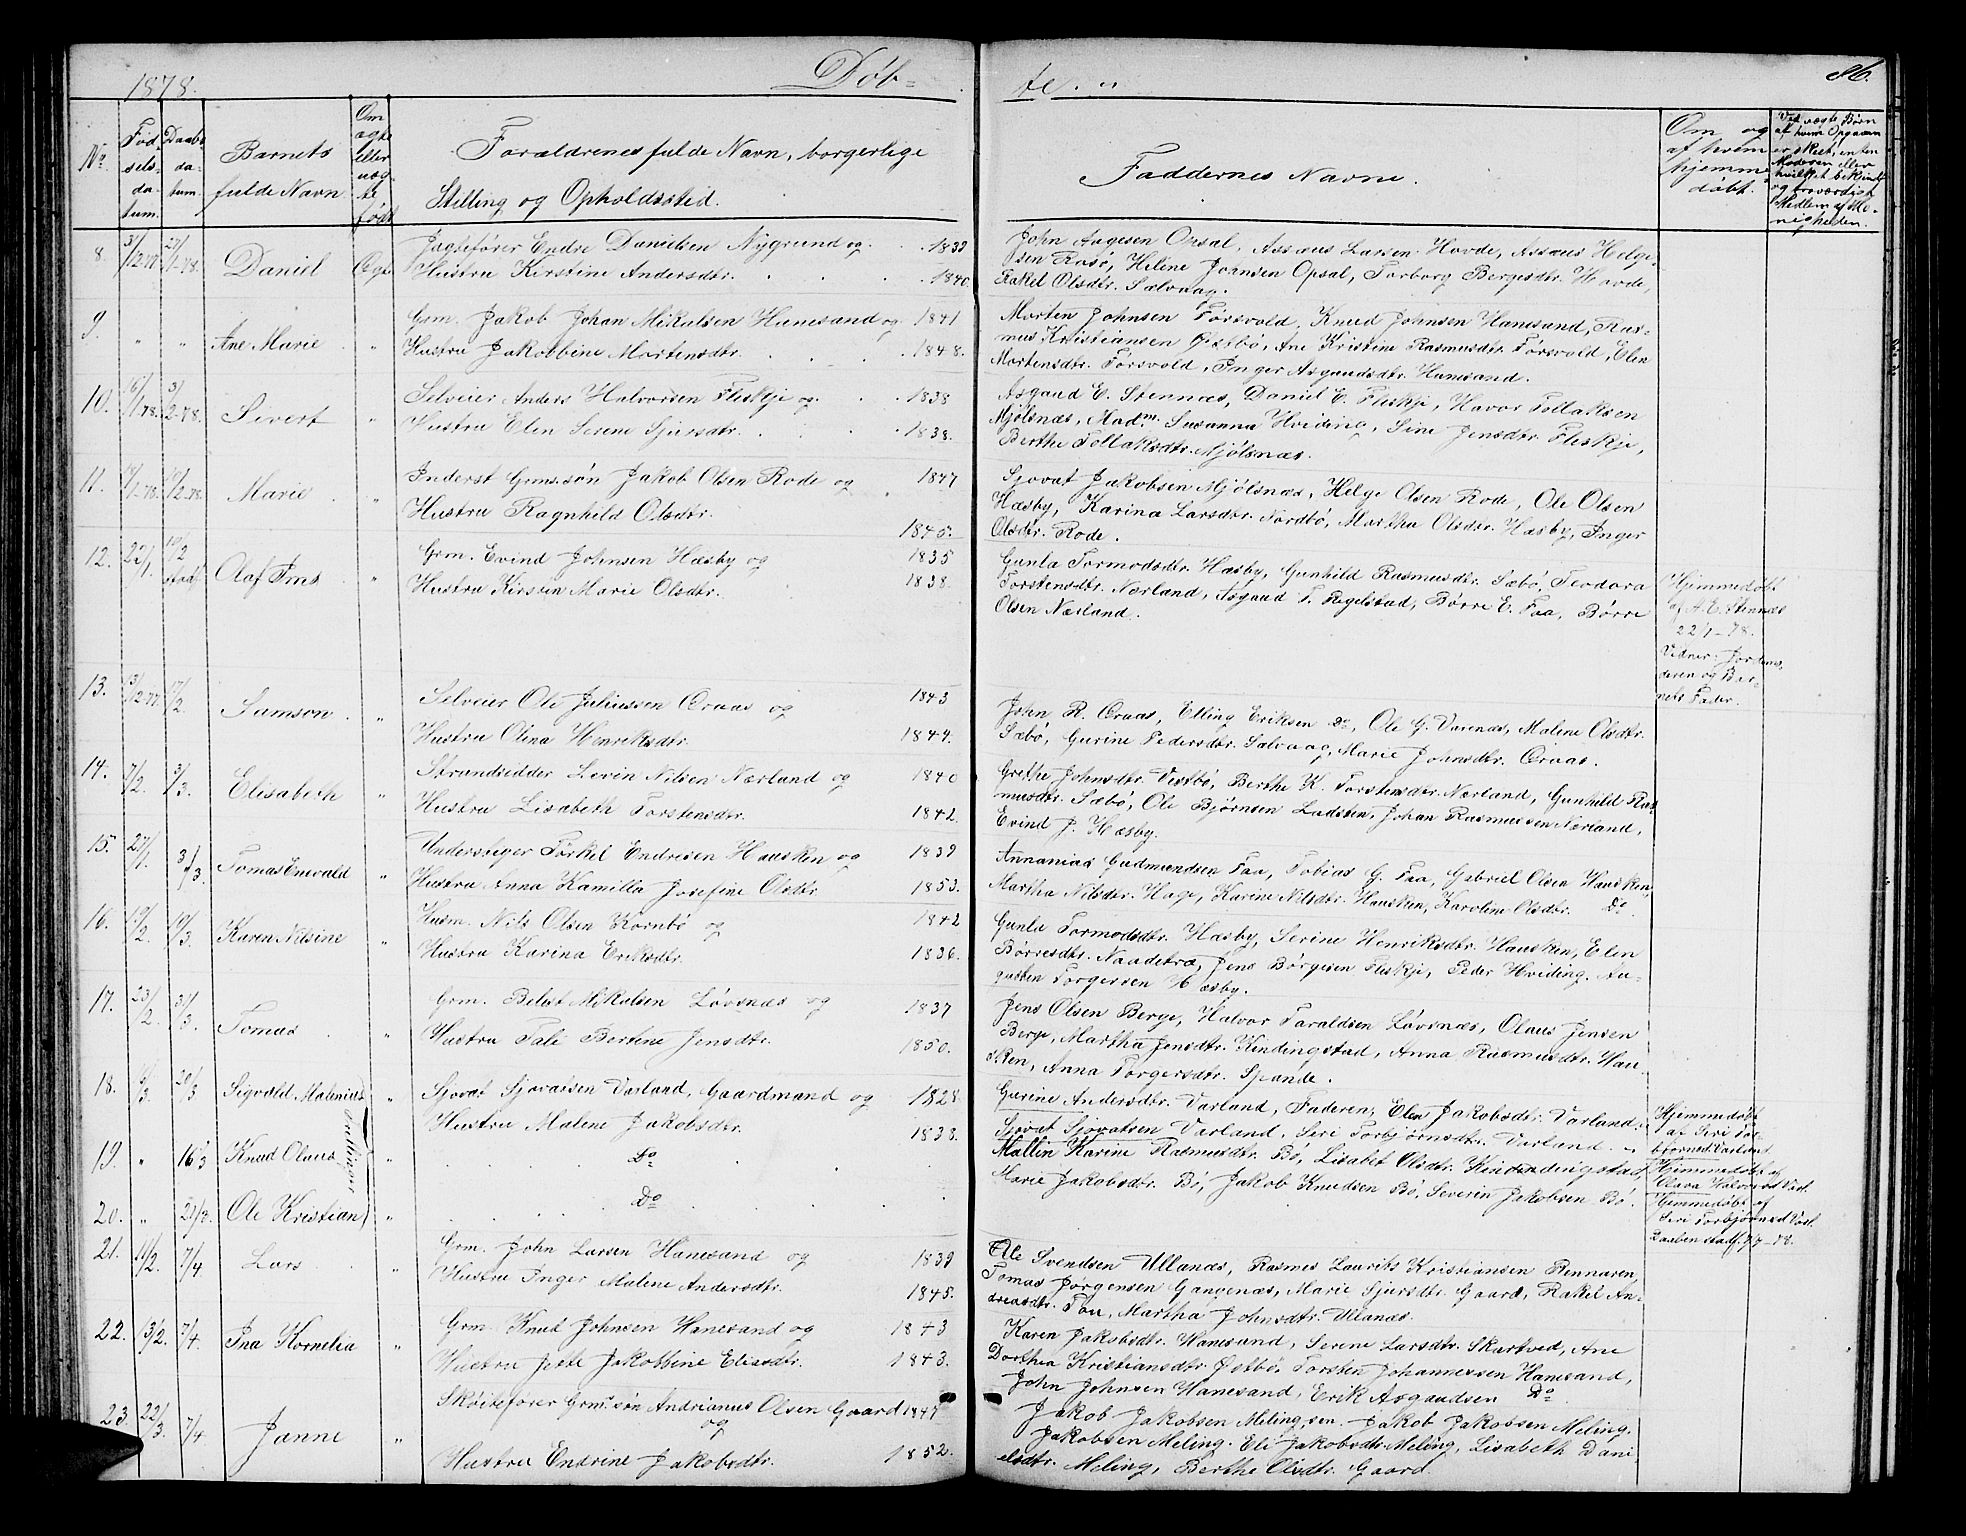 1878.
Døb-
te. "
86.
No.
Fød-
sels-
da-
tum.
Daabs
da-
tum.
Barnets
fulde Navn
Om
ægte
eller
uæg-
te
født
Forældrenes fulde Navn, borgerlige
Stilling og Opholdssted.
Faddernes Navne.
Om og
af hvem
hjemme
døbt.
Ved uægte Børn
af hvem Opgaven
er skeet, enten
Moderen eller
hvilket bekiendt
og troværdigt
Medlem af Me-
nigheden.
8. 3/12-77 27/1-78. Daniel Ægte
Jagtefører Endre Danielsen Nygrund og 1839
Hustru Kirstine Andersdtr. 1840.
John Aagesen Opsal, Assæus Larsen Hovde, Assæus Helge-
sen Rosø, Helene Johnsen Opsal, Torborg Bergesdtr. Hovde,
Rakel Olsdtr. Salvaag.
9. " " Ane Marie "
Grm. Jakob Johan Mikalsen Hanesand og 1841
Hustru Jakobbine Mortensdtr. 1848.
Morten Johnsen Førsvold, Knud Johnsen Hanesand, Ras-
mus Kristiansen Østbø, Ane Kristine Rasmusdtr. Førsvold, Elen
Mortensdtr. Førsvold, Inger Asgaudsdtr. Hanesand.
10. 16/1-78. 3/2-78. Sivert "
Selveier Anders Halvorsen Fliskje og 1838
Hustru Elen Serene Sjursdtr. 1838.
Asgaud E. Stennæs, Daniel E. Fliskje, Havor Tollaksen
Mjølsnæs, Madm. Susanna Hviding, Sine Jensdtr. Fliskje,
Berthe Tollaksdtr. Mjølsnæs.
11. 14/1-78. 10/2-78. Marie "
Inderst Grms.søn Jakob Olsen Rode og 1847
Hustru Ragnhild Olsdtr. 1845.
Sjovat Jakobsen Mjølsnæs, Helge Olsen Rode, Ole Olsen
Hæsby, Karina Larsdtr. Nordbø, Martha Olsdtr. Hæsby, Inger
Olsdtr. Rode.
12. 22/1. 10/2 stadf. Olaf Ims "
Grm. Evind Johnsen Hæsby og 1835
Hustru Kirsten Marie Olsdtr. 1838.
Gunla Tormodsdtr. Hæsby, Gunhild Rasmusdtr. Sæbø, Teodora
Torstensdtr. Nærland, Asgaud T. Fegelstad, Børre E. Faa, Børre
Olsen Nærland.
Hjemmedøbt
af A. E. Stennæs
22/1-78.
Vidner: Jordemo-
deren og Bar-
nets Fader.
13. 13/12-77 17/2. Samson "
Selveier Ole Juliussen Øraas og 1843
Hustru Olina Henriksdtr. 1844.
John R. Øraas, Elling Eriksen do, Ole G. Varenæs, Malene Olsdtr.
Sæbø, Gurine Pedersdtr. Salvaag, Marie Johnsdtr. Øraas.
14. 7/2. 3/3. Elisabeth "
Strandsidder Levin Nilsen Nærland og 1840
Hustru Lisabeth Torstensdtr. 1842.
Grethe Johnsdtr. Vestbø, Berthe K. Torstensdtr. Nærland, Gunhild Ras-
musdtr. Sæbø, Ole Bjørnsen Ladsten, Johan Rasmussen Nærland,
Evind J. Hæsby.
15. 27/1. 3/3. Tomas Enevald "
Understiger Tørkel Endresen Hausken og 1839
Hustru Anna Kamilla Josefine Olsdtr 1853.
Annanias Gudmundsen Faa, Tobias G. Faa, Gabriel Olsen Hausken,
Martha Nilsdtr. Hage, Karine Nilsdtr. Hausken, Karoline Olsdtr. Do.
16. 19/2. 10/3. Karen Nilsine "
Husm. Nils Olsen Kornbø og 1842
Hustru Karina Eriksdtr. 1836.
Gunla Tormodsdtr. Hæsby, Serine Henriksdtr. Hausken, Elen
Børresdtr. Naadetræ, Jens Børgesen Fliskje, Peder Hviding, Au-
gusten Torgersen Hæsby.
17. 23/2. 31/3. Tomas "
Grm. Belest Mikalsen Løvsnæs og 1837
Hustru Tale Bertine Jensdtr. 1850.
Jens Olsen Berge, Halvor Taraldsen Løvsnæs, Olaus Jensen
Berge, Martha Jensdtr. Kindingstad, Anna Rasmusdtr. Hau-
sken, Anna Torgersdtr. Spande.
18. 6/3. 20/3 Sigvald Malenius "
Trillinger
Sjovat Sjovatsen Varland, Gaardmand og 1828.
Hustru Malene Jakobsdtr. 1838.
Gurine Andersdtr. Varland, Faderen, Elen Jakobsdtr. Varland,
Sjovat Sjovatsen Varland, Seri Torbjørnsdtr. Varland. "
Hjemmedøbt
af Seri Tor-
bjørnsd. Varland
19. " 16/3 Knud Olaus "
Do
Mallin Karine Rasmusdtr. Bø, Lisabet Olsdtr. Kindendingstad,
Marie Jakobsdtr. Bø, Jakob Knudsen Bø, Severin Jakobsen Bø.
Hjemmedøbt af
Olava Halvorsd Varl.
20. " 21/3. Ole Kristian "
Do
Hjemmedøbt af
Seri Torbjørnsd Varl.
Daaben stadf. 7/4-78.
21. 11/2. 7/4. Lars "
Grm. John Larsen Hanesand og 1839
Hustru Inger Malene Andersdtr. 1845.
Ole Svendsen Ullanæs, Rasmus Laurits Kristiansen Rennaren,
Tomas Jørgensen Gangenæs, Marie Sjursdtr. Gaard, Rakel An-
dreasdtr. Fau, Martha Johnsdtr. Ullanæs.
22. 13/2. 7/4. Ina Kornelia "
Grm. Knut Johnsen Hanesand og 1843
Hustru Jette Jakobine Eliasdtr. 1843.
Karen Jakobsdtr. Hanesand, Serene Larsdtr. Skartved, Ane
Dorthea Kristiansdtr. Østbø, Torsten Johannessen Hanesand,
John Johnsen Hanesand, Erik Asgaudsen Do.
23. 22/3. 7/4. Janne "
Skøitefører Grms.søn Andrianus Olsen Gaard 1847
og
Hustru Endrine Jakobsdtr. 1852.
Jakob Jakobsen Melingssen. Jakob Jakobsen Meling.
Jakobsen Meling. Eli Jakobsdtr. Meling, Lisabeth Dani-
elsdtr. Meling, Berthe Olsdtr. Gaard.